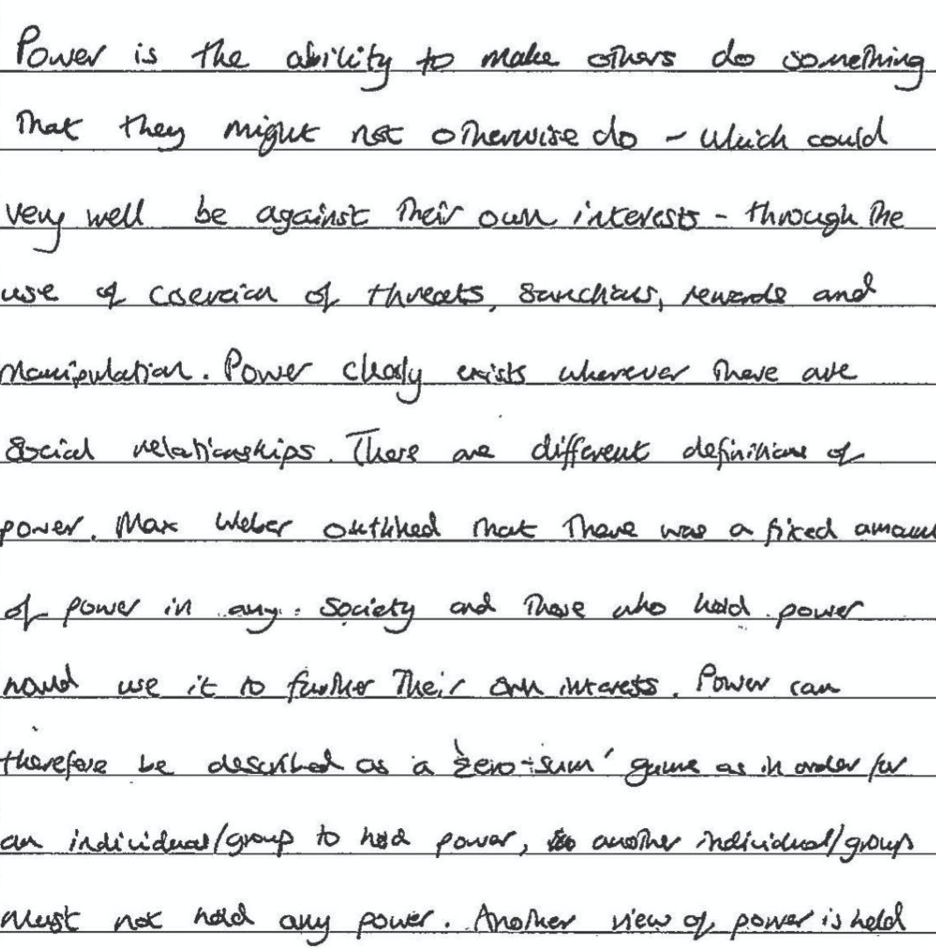 Power is the ability to make others do something
that they might not otherwise do - which could
very well be against their own interests - through the
use of coercion of threats, sanctions, rewards and
manipulation. Power clearly exists wherever there are
social relationships. There are different definitions of
power. Max Weber outlined that there was a fixed amount
of power in any society and those who hold power
would use it to further their own interests. Power can
therefore be described as a 'zero-sum' game as in order for
an individual/group to hold power, another individual/group
must not hold any power. Another view of power is held